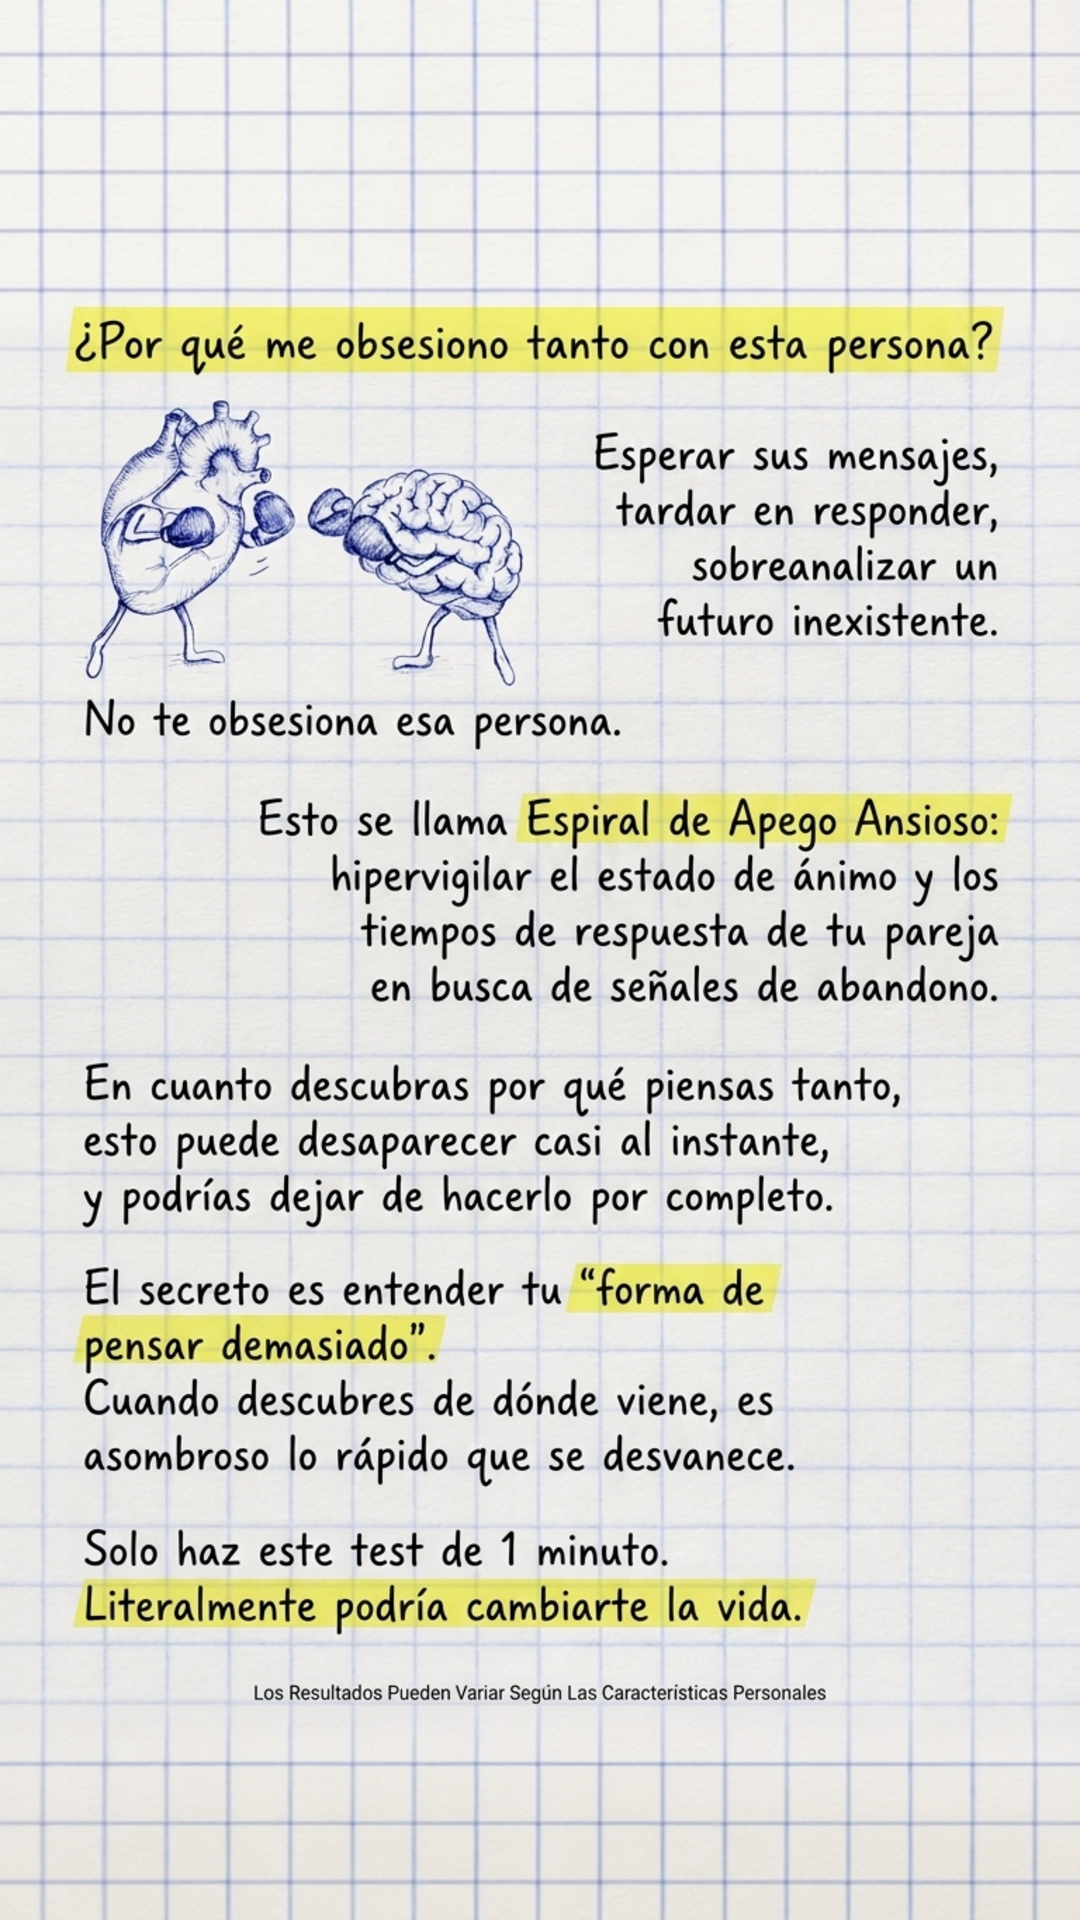 ¿Por qué me obsesiono tanto con esta persona?
Esperar sus mensajes,
tardar en responder,
sobreanalizar un
futuro inexistente.
No te obsesiona esa persona.
Esto se llama Espiral de Apego Ansioso:
hipervigilar el estado de ánimo y los
tiempos de respuesta de tu pareja
en busca de señales de abandono.
En cuanto descubras por qué piensas tanto,
esto puede desaparecer casi al instante,
y podrías dejar de hacerlo por completo.
El secreto es entender tu “forma de
pensar demasiado”.
Cuando descubres de dónde viene, es
asombroso lo rápido que se desvanece.
Solo haz este test de 1 minuto.
Literalmente podría cambiarte la vida.
Los Resultados Pueden Variar Según Las Características Personales